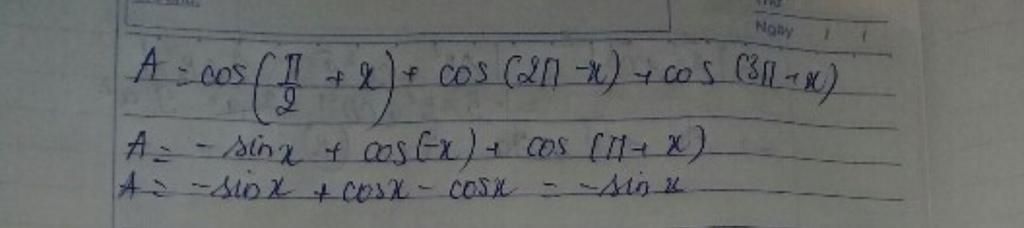 Ngày / /
A = cos(π/2 + x) + cos(2π - x) + cos(3π + x)
A = - sinx + cos(-x) + cos(π + x)
A = - sinx + cosx - cosx = - sinx